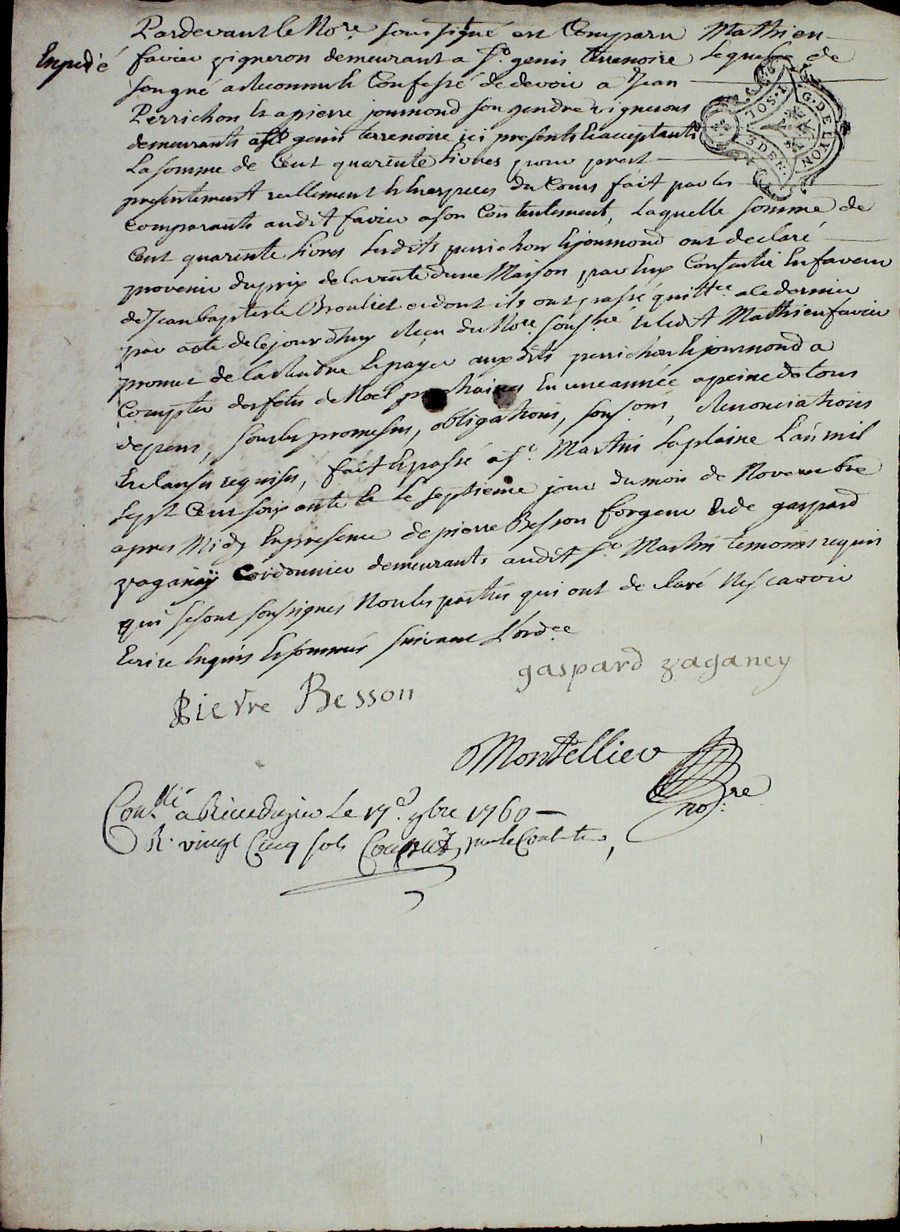 Expedié
Pardevant le No.re soussigné est Comparu Mathieu
favier vigneron demeurant a St. genis terrenoire lequel de
son gré a reconnu et Confessé de devoir a Jean
Perrichon et a pierre journond son gendre vignerons
demeurants a St. genis terrenoire ici presents et acceptants
La somme de Cent quarente livres pour prest
presentement reellement et en especes du Cours fait par les
comparants audit favier a son Contentement, Laquelle somme de
Cent quarente livres lesdits perrichon et journond ont declaré
provenir du prix de la vente d'une Maison par Eux Consentie En faveur
de Jean baptiste Brouliet et dont ils ont passé quitt.ce a ce dernier
par acte de ce jourd'huy Recu du No.re sous.né et ledit Mathieu favier
promet de la rendre et payer auxdits perrichon et journond a
Compter des fetes de Noel prochaines En une année a peine de tous
depens, sous les promesses, obligations, soumons, Renonciations
et clauses requises, fait et passé a St. Martin la plaine L'an mil
sept Cent soixante et le septieme jour du mois de Novembre
apres Midy En presence de pierre Besson forgeur et de gaspard
zaganey cordonnier demeurants audit St Martin temoins requis
qui se sont soussignes Non les parties qui ont declaré Ne scavoir
Ecrire Enquis et sommés suivant L'ord.ce
Pierre Besson
gaspard zaganey
Montellier
no.re
Con.llé a Rivedegier Le 17.e 9bre 1760
R. vingt Cinq sols
G. DE LYON
3 DEN.